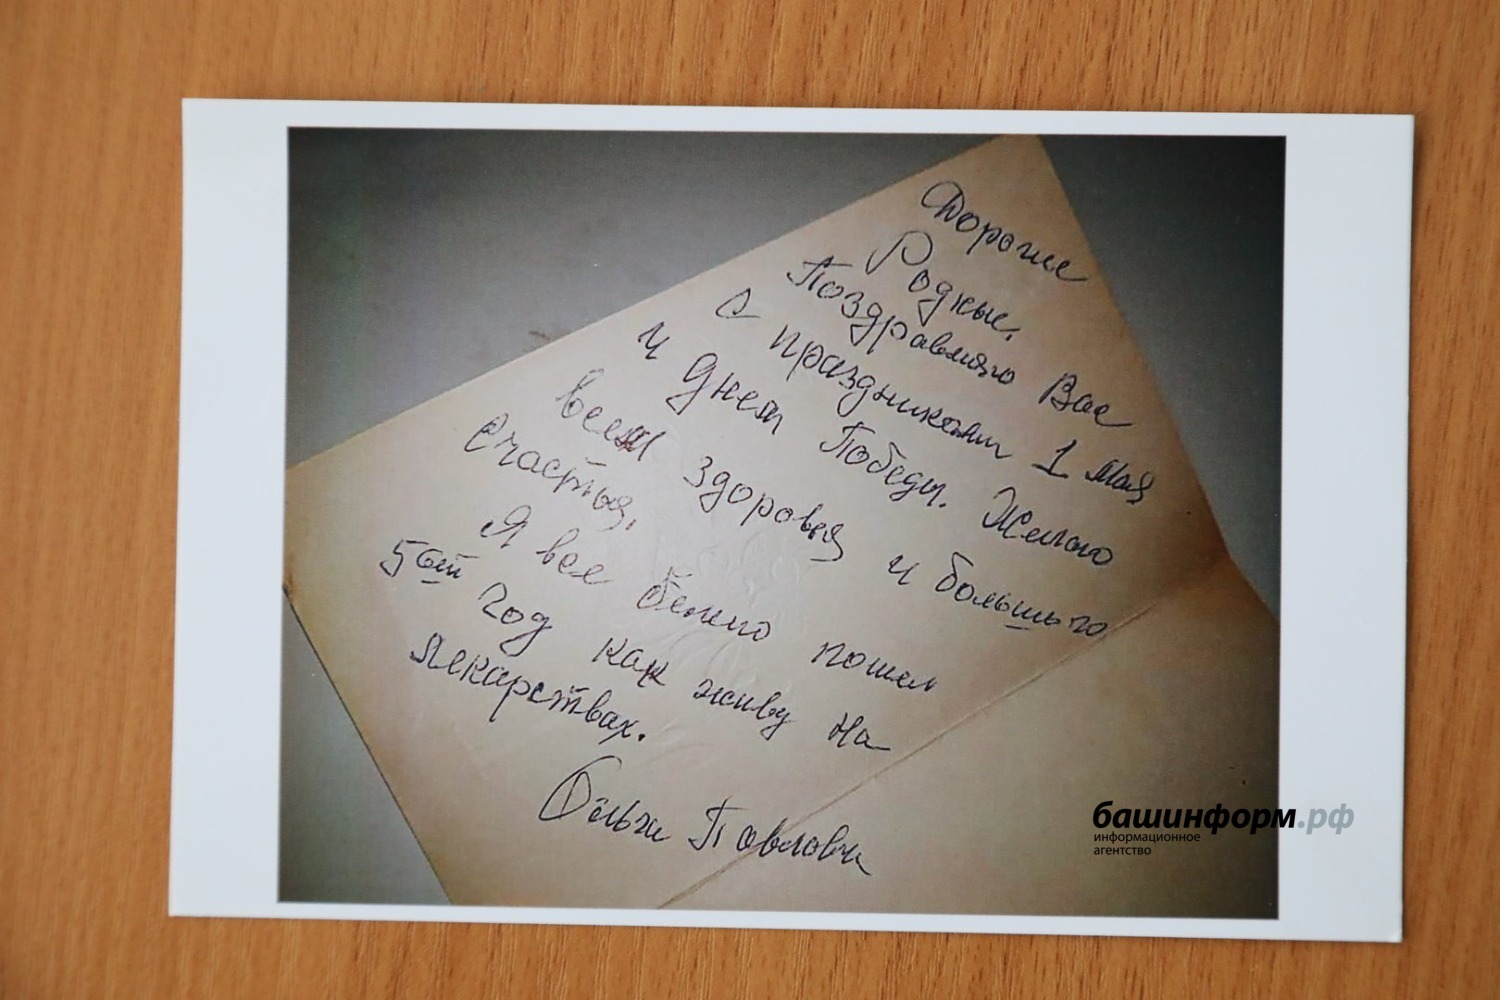 Дорогие
Родные.
Поздравляю Вас
с праздниками 1 Мая
и Днем Победы. Желаю
всем здоровья и большого
счастья.
Я все болею пошел
5ый год как живу на
лекарствах.
Ольги Павловы
башинформ.рф
информационное
агентство